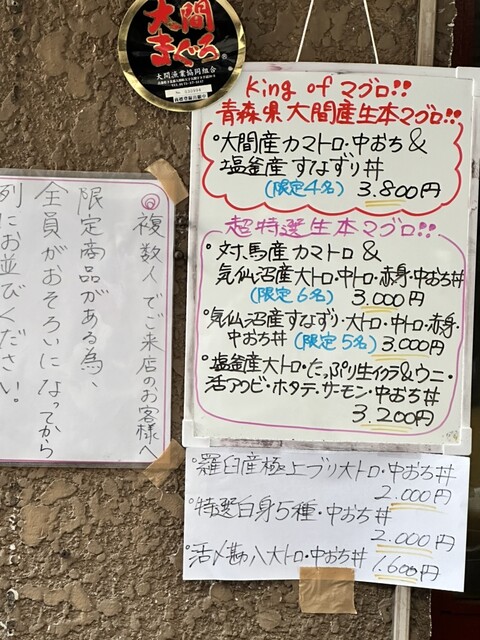 大間
まぐろ
大間漁業協同組合
King of マグロ!!
青森県大間産生本マグロ!!
°大間産カマトロ・中おち&
塩釜産すなずり丼
(限定4名) 3.800円
超特選生本マグロ!!
°対馬産カマトロ&
気仙沼産大トロ・中トロ・赤身・中おち丼
(限定6名) 3.000円
°気仙沼産すなずり・大トロ・中トロ・赤身・
中おち丼 (限定5名) 3.000円
°塩釜産大トロ・たっぷり生イクラ&ウニ・
活アワビ・ホタテ・サーモン・中おち丼
3.200円
°羅臼産極上ブリ大トロ・中おち丼
2.000円
°特選白身5種・中おち丼
2.000円
°活〆勘八大トロ・中おち丼 1.600円
◎複数人でご来店のお客様へ
限定商品がある為、
全員がおそろいになってから
列にお並びください。